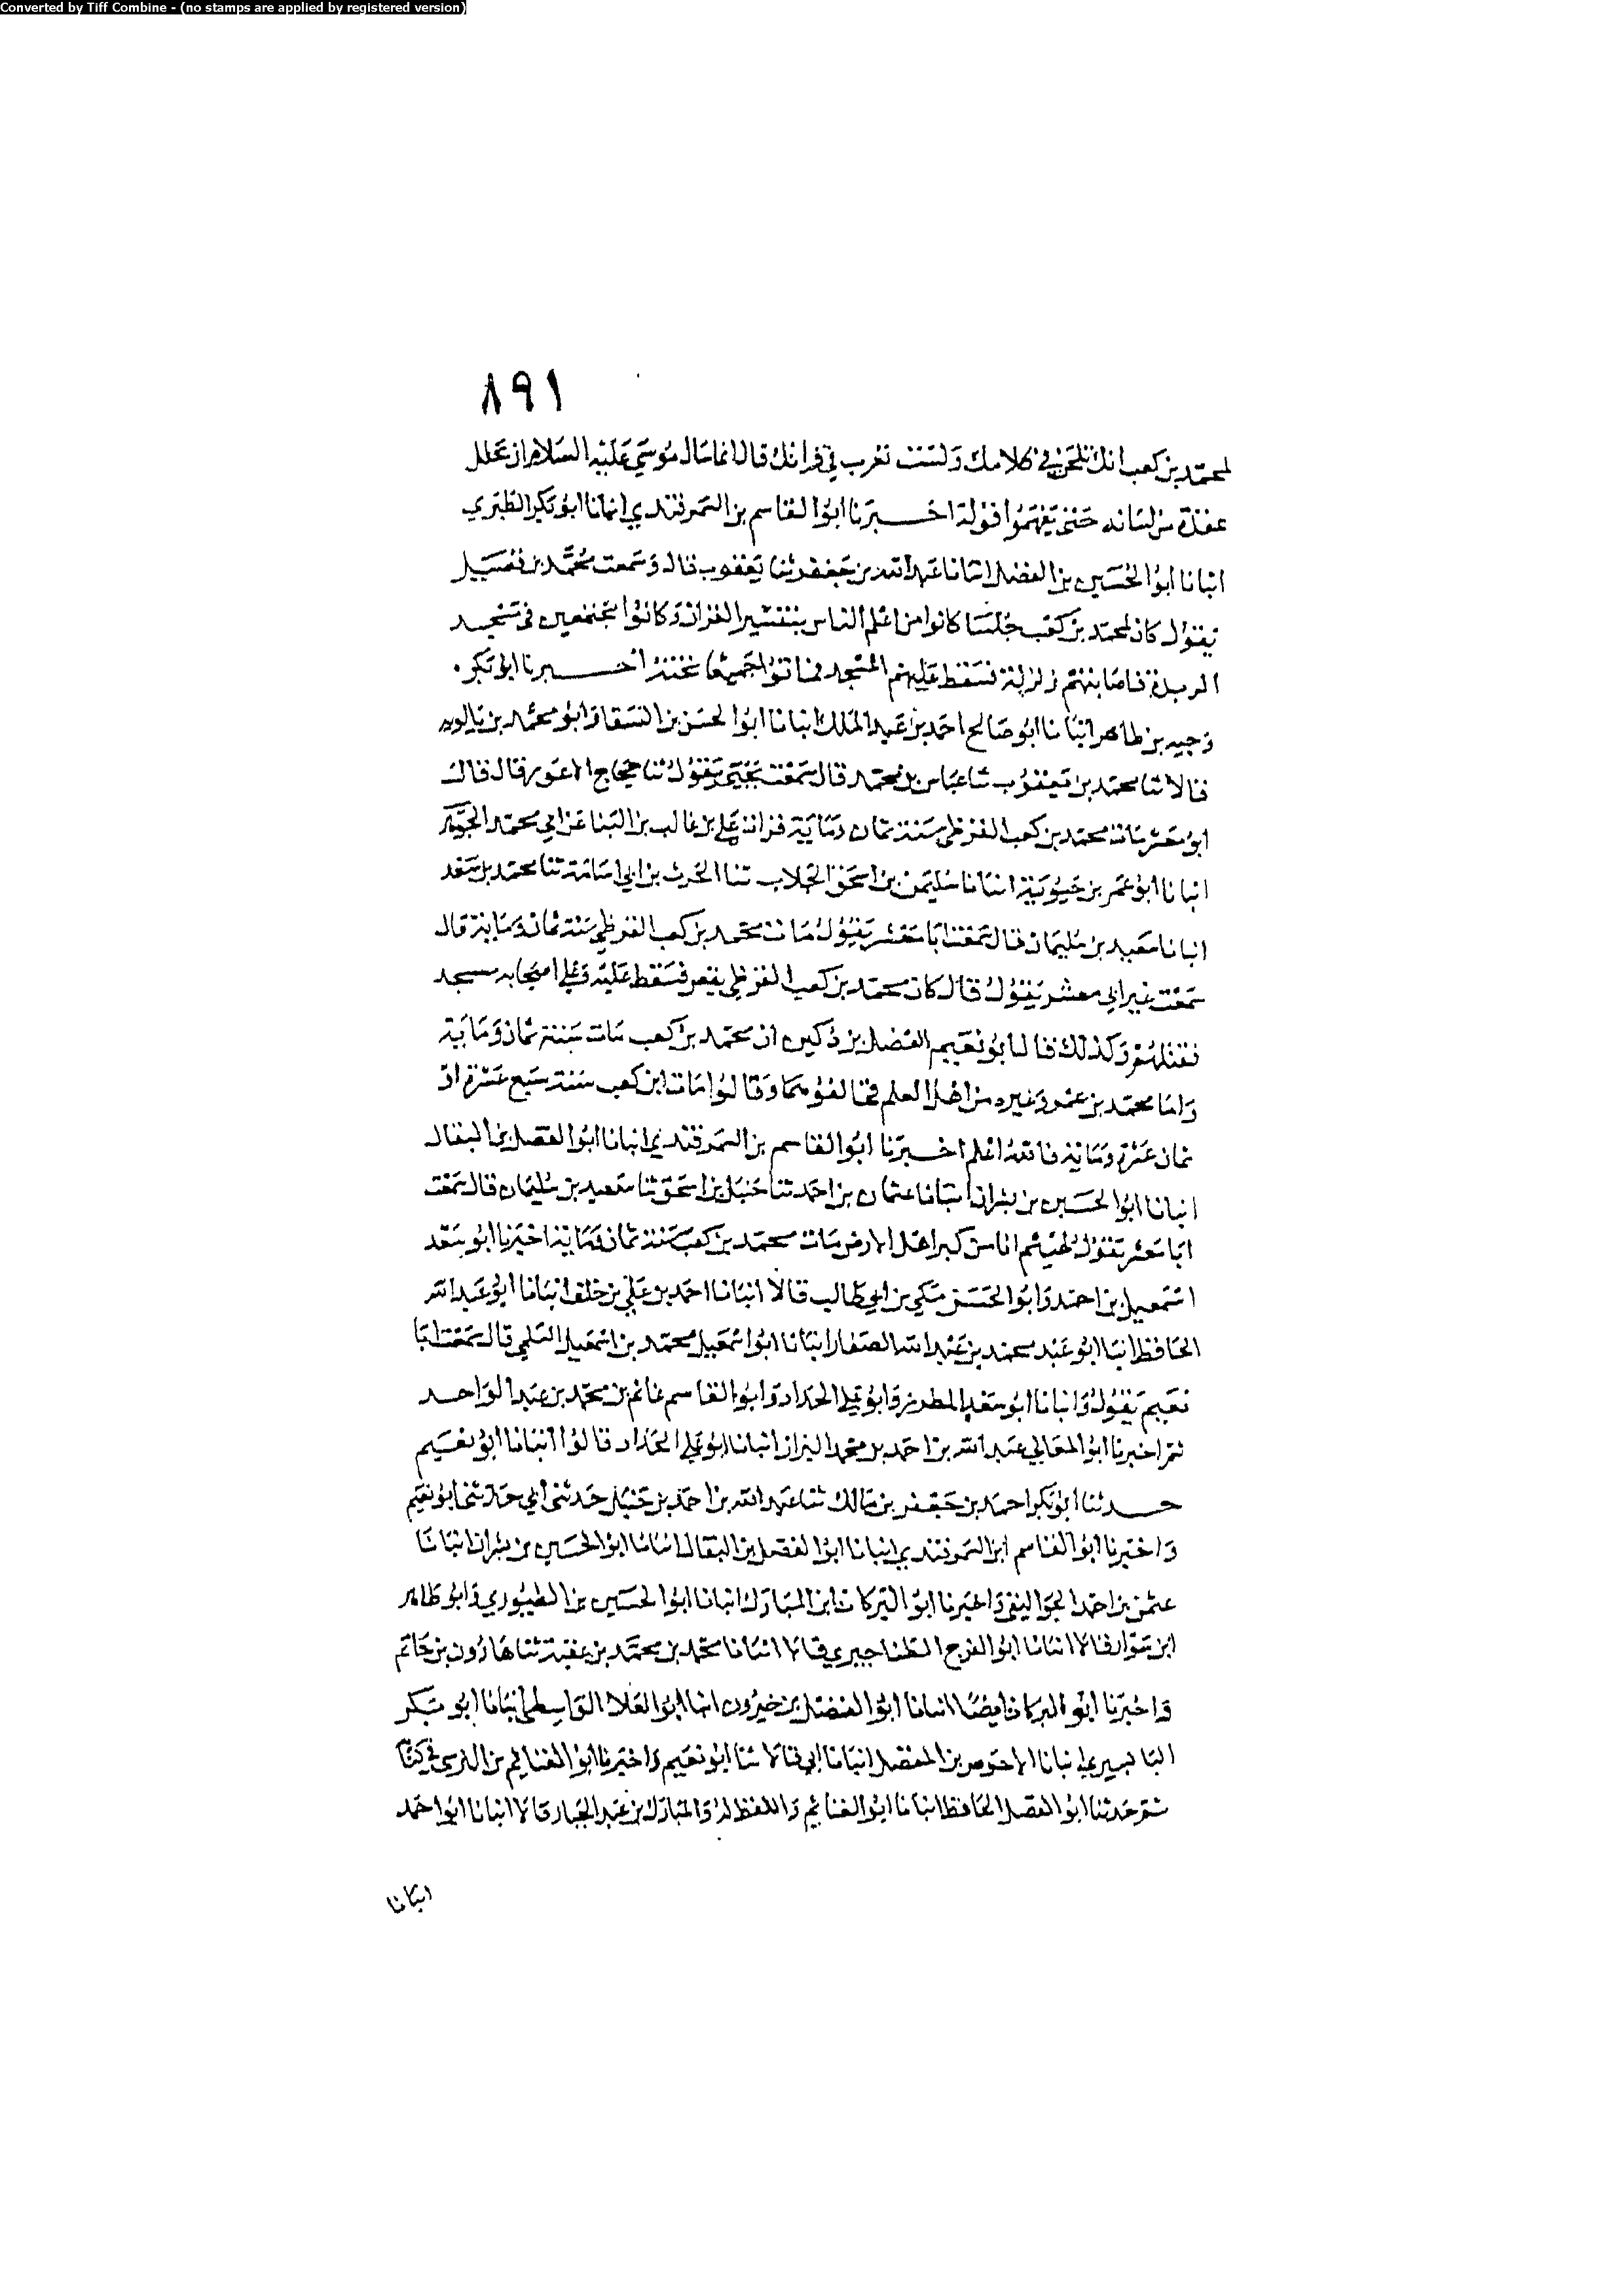 Converted by Tiff Combine - (no stamps are applied by registered version)
٨٩١
لمحمد بن كعب انك تلحن في كلامك ولست تعرب في قرانك قال انما سال موسى عليه السلام ان تحلل
عقدة من لسانه حتى يفهموا قوله اخبرنا ابو القاسم بن السمرقندي انبانا ابو بكر الطبري
انبانا ابو الحسين بن الفضل انبانا عبد الله بن جعفر ثنا يعقوب قال وسمعت محمد بن فضيل
يقول كان لمحمد بن كعب جلسا كانوا من اعلم الناس بتفسير القران وكانوا مجتمعين في مسجد
الربذة فاصابتهم زلزلة فسقط عليهم المسجد فماتوا جميعا تحته اخبرنا ابو بكر
وجيه بن طاهر انبانا ابو صالح احمد بن عبد الملك انبانا ابو الحسن بن السقا وابو محمد بن بالويه
قالا ثنا محمد بن يعقوب ثنا عباس بن محمد قال سمعت يحيى يقول ثنا حجاج الاعور قال قال
ابو معشر مات محمد بن كعب القرظي سنة ثمان ومايه قرات على بن غالب بن البنا عن ابي محمد الجوهري
انبانا ابو عمر بن حيويه انبانا سليمن بن اسحق الجلاب ثنا الحرث بن ابي اسامة ثنا محمد بن سعد
انبانا سعيد بن سليمان قال سمعت ابا معشر يقول مات محمد بن كعب القرظي سنة ثمان وماية قال
سمعت غير ابي معشر يقول قال كان محمد بن كعب القرظي يقص فسقط عليه وعلى اصحابه مسجد
فقتلهم وكذلك قال ابو نعيم الفضل بن دكين ان محمد بن كعب مات سنة ثمان وماية
واما محمد بن عمر وغيره من اهل العلم فخالفوهما وقالوا مات ابن كعب سنة سبع عشرة او
ثمان عشرة وماية فالله اعلم اخبرنا ابو القاسم بن السمرقندي انبانا ابو الفضل بن البقال
انبانا ابو الحسين بن بشران انبانا عثمان بن احمد ثنا حنبل بن اسحق ثنا سعيد بن سليمان قال سمعت
ابا معشر يقول مات محمد بن كعب سنة ثمان وماية اخبرنا ابو سعد
اسمعيل بن احمد وابو الحسن مكي بن ابي طالب قالا انبانا احمد بن علي بن خلف انبانا ابو عبد الله
الحافظ انبا ابو عبد محمد بن عبد الله الصفار انبانا ابو اسمعيل محمد بن اسمعيل السلمي قال سمعت ابا
نعيم يقول وانبانا ابو سعد المطرز وابو علي الحداد وابو القاسم غانم بن محمد بن عبد الواحد
ثم اخبرنا ابو المعالي عبد الله بن احمد بن محمد البزاز انبانا ابو علي الحداد قالوا انبانا ابو نعيم
حدثنا ابو بكر احمد بن جعفر بن مالك ثنا عبد الله بن احمد بن حنبل حدثني ابي حدثني ابو نعيم
واخبرنا ابو القاسم ابن السمرقندي انبانا ابو الفضل بن البقال انبانا ابو الحسين بن بشران انبانا
عثمن بن احمد الجواليقي واخبرنا ابو البركات ابن المبارك انبانا ابو الحسين بن الطيوري وابو طاهر
ابن سوار قالا انبانا ابو الفرج الطناجيري قالا انبانا محمد بن محمد بن عقبة ثنا هارون بن حاتم
واخبرنا ابو البركات ايضا انبانا ابو الفضل بن خيرون انبا ابو العلا الواسطي انبانا ابو بكر
البابسيري انبانا الاحوص بن المفضل انبانا ابي قالا ثنا ابو نعيم واخبرنا ابو الغنايم بن النرسي في كتابه
ثم حدثنا ابو الفضل الحافظ انبانا ابو الغنايم واللفظ له والمبارك بن عبد الجبار قالا انبانا ابو احمد
انبانا